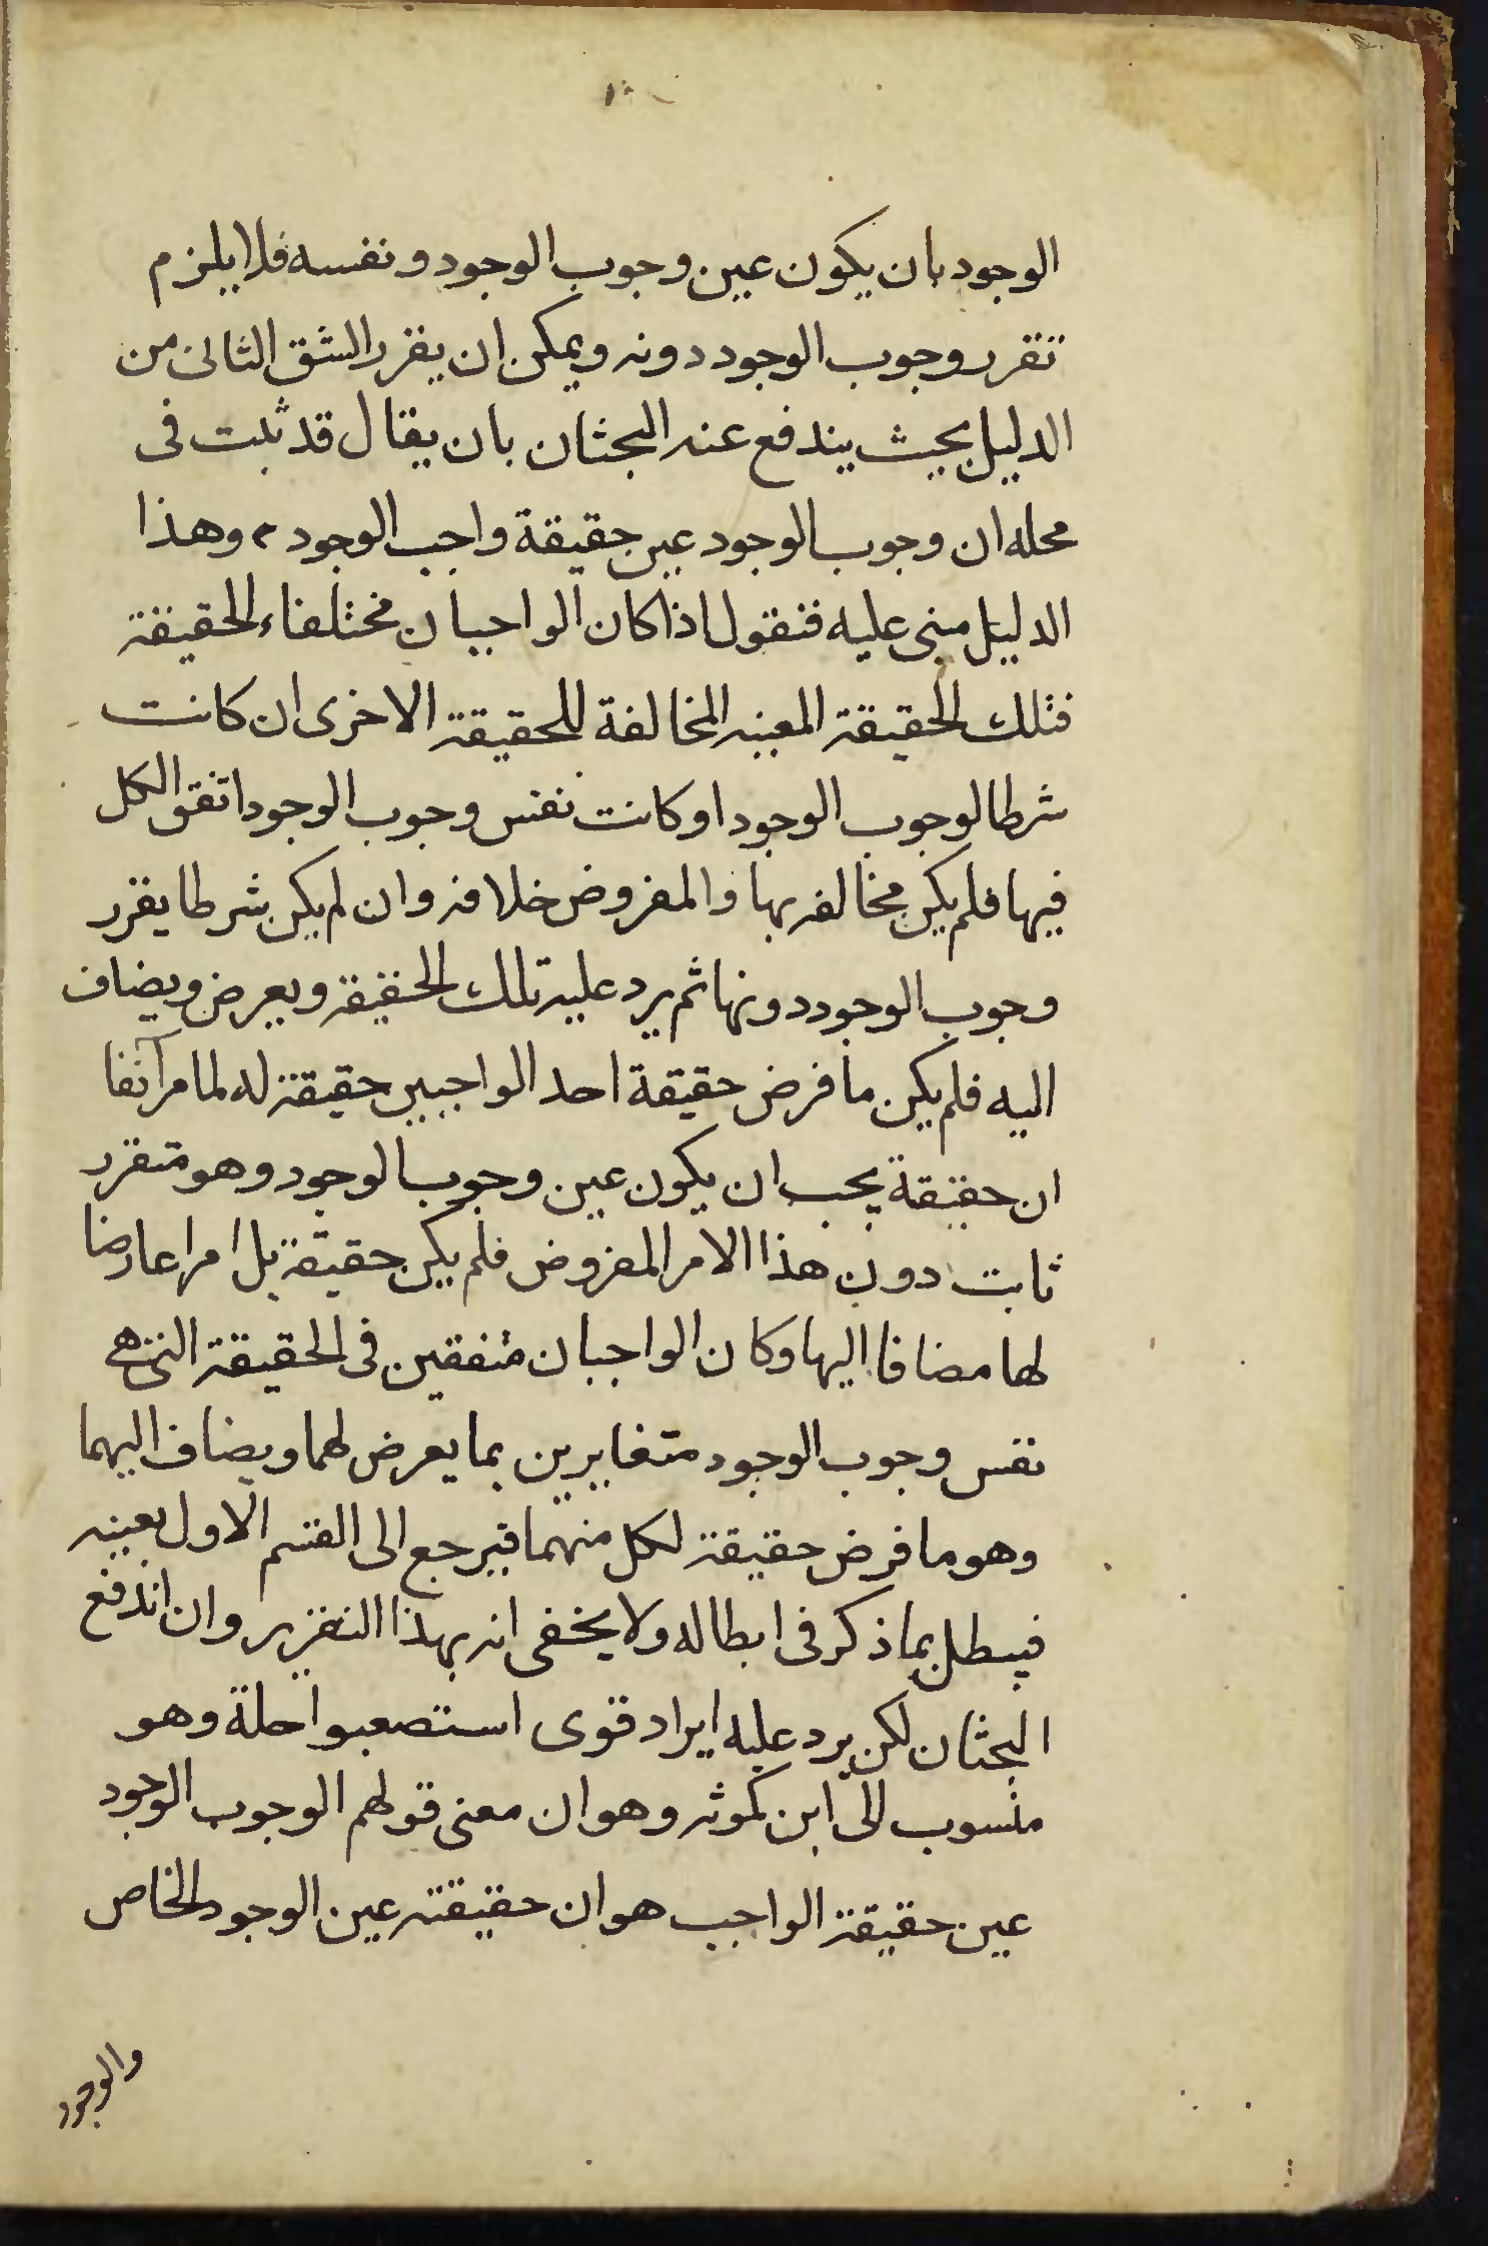 الوجود بان يكون عين وجوب الوجود ونفسه فلا يلزم
تقرر وجوب الوجود دونه ويمكن ان يقرر الشق الثانى من
الدليل بحيث يندفع عنه البحثان بان يقال قد ثبت فى
محله ان وجوب الوجود عين حقيقة واجب الوجود وهذا
الدليل مبنى عليه فنقول اذا كان الواجبان مختلفاء الحقيقة
فتلك الحقيقة المعينه المخالفة للحقيقة الاخرى ان كانت
شرطا لوجوب الوجود او كانت نفس وجوب الوجود اتفق الكل
فيها فلم يكن مخالفه بها والمفروض خلافه وان لم يكن شرطا يقرر
وجوب الوجود دونها ثم يرد عليه تلك الحقيقة ويعرض ويضاف
اليه فلم يكن ما فرض حقيقة احد الواجبين حقيقة له لما مر آنفا
ان حقيقة يجب ان يكون عين وجوب الوجود وهو متقرر
ثابت دون هذا الامر المفروض فلم يكن حقيقة بل امرا عارضا
لها مضافا اليها وكان الواجبان متفقين فى الحقيقة التى هى
نفس وجوب الوجود متغايرين بما يعرض لهما ويضاف اليهما
وهو ما فرض حقيقة لكل منهما فيرجع الى القسم الاول بعينه
فيبطل بما ذكر فى ابطاله ولا يخفى انه بهذا التقرير وان اندفع
البحثان لكن يرد عليه ايراد قوى استصعبوا حلة وهو
منسوب الى ابن كموثه وهو ان معنى قولهم الوجوب الوجود
عين حقيقة الواجب هو ان حقيقته عين الوجود الخاص
والوجود